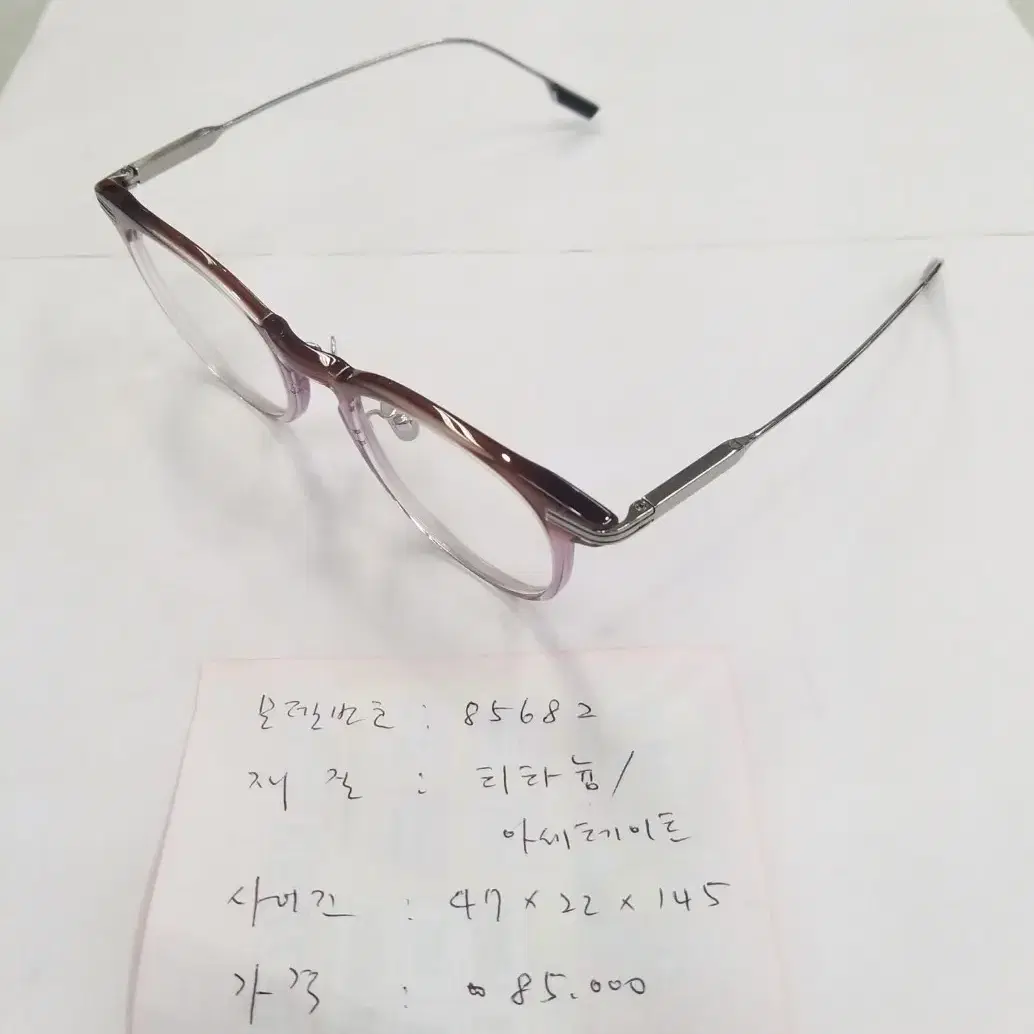 모델번호 : 85682
재 질 : 티타늄/
아세테이트
사이즈 : 47 x 22 x 145
가격 : 85.000